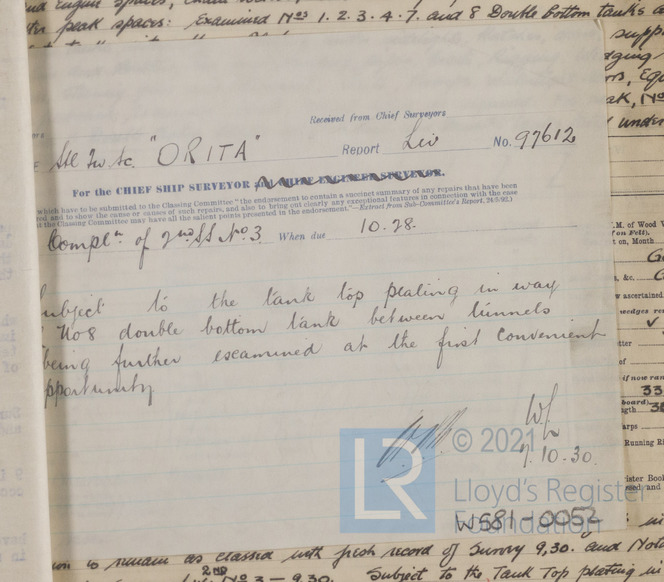 ter peak spaces: Examined Nos 1. 2. 3. 4. 7. and 8 Double bottom tanks
Received from Chief Surveyors
Stl Tw. Sc. "ORITA" Report Liv No. 97612
For the CHIEF SHIP SURVEYOR and CHIEF ENGINEER SURVEYOR.
which have to be submitted to the Classing Committee "the endorsement to contain a succinct summary of any repairs that have been
red and to show the cause or causes of such repairs, and also to bring out clearly any exceptional features in connection with the case
t the Classing Committee may have all the salient points presented in the endorsement."—Extract from Sub-Committee's Report, 24/5/92.)
Compln of 2nd SS No. 3 When due 10.28.
ubject to the tank top plating in way
No 8 double bottom tank between tunnels
being further examined at the first convenient
pportunity
WL
7.10.30.
© 2021
LR
Lloyd's Register
Foundation
W581-0052
to remain as classed with fresh record of Survey 9,30. and
2ND
No 3 - 9.30. Subject to the Tank Top plating in